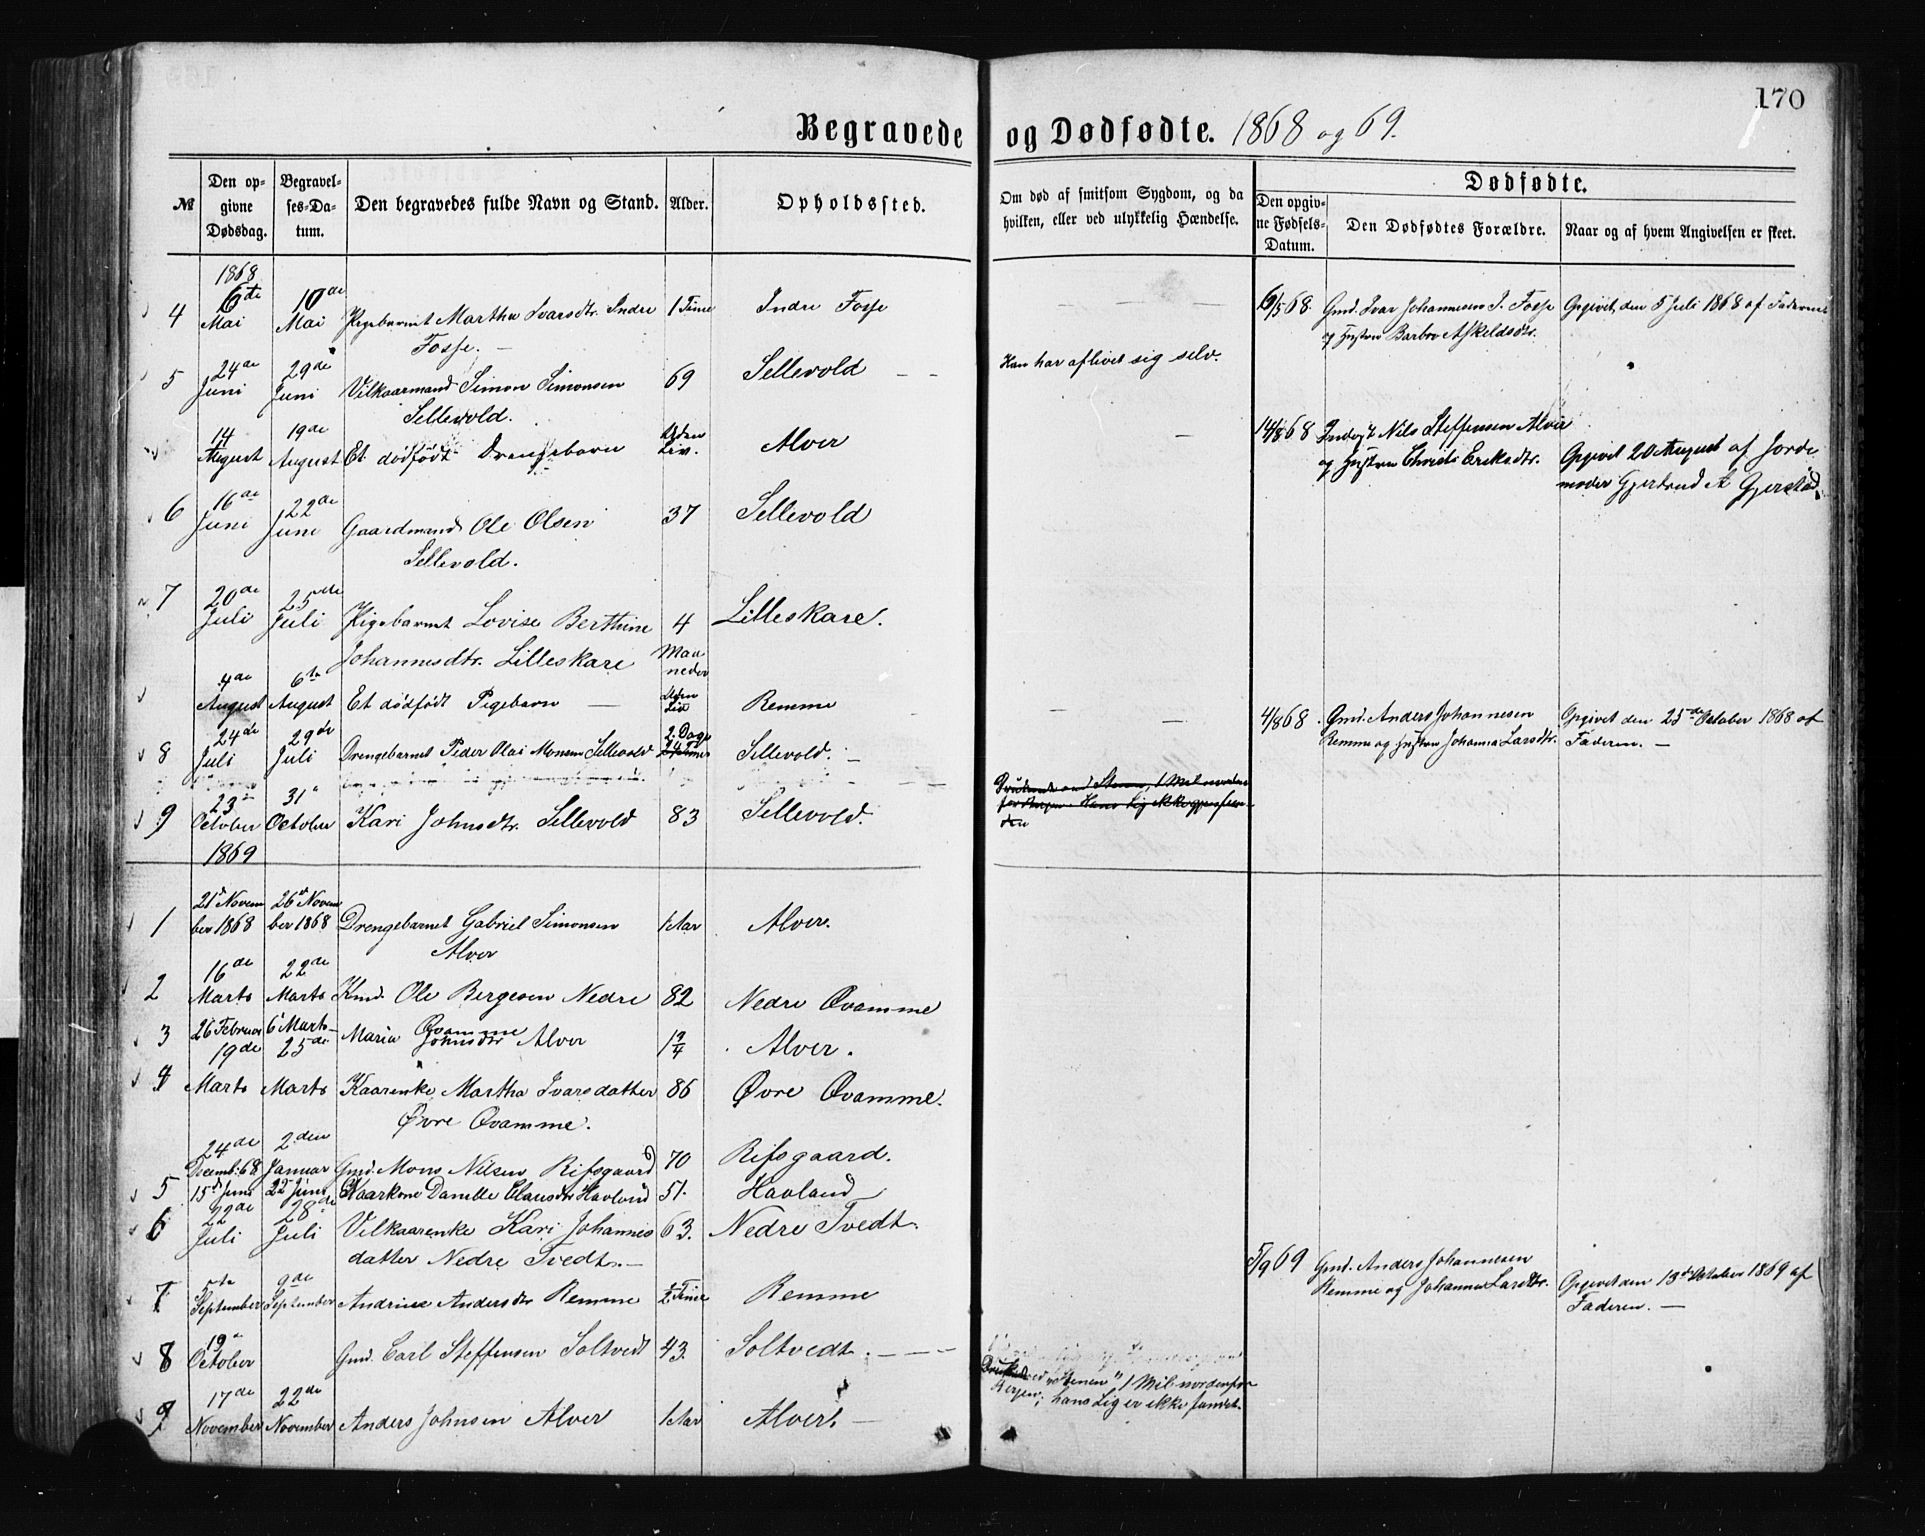 170
Begravede og Dødfødte. 1868 og 69.
№
Den opgivne Dødsdag.
Begravelses-Datum.
Den begravedes fulde Navn og Stand.
Alder.
Opholdssted.
Om død af smitsom Sygdom, og da hvilken, eller ved ulykkelig Hændelse.
Dødfødte.
Den opgivne Fødsels-Datum.
Den Dødfødtes Forældre.
Naar og af hvem Angivelsen er skeet.
1868
4 6te Mai 10de Mai Pigebarnet Martha Ivarsdtr. Indre 1 Time Indre Fosse 6/5 68. Gmd. Ivar Johannesen I. Fosse Opgivet den 5 Juli 1868 af Faderen
Fosse. — og Hustru Barbro Askeldsdtr.
5 24de Juni 29de Juni Vilkaarmand Simon Simonsen 69 Sellevold Han har aflivet sig selv.
Sellevold.
14 August 19de August Et dödfödt Drengebarn Uden Liv. Alver 14/8 68 Nils Steffensen Alver
og Hustru Christi Eriksdtr. Opgivet 20 August af Jordemoder Gjertrud A Gjerstad
6 16de Juni 22de Juni Gaardmand Ole Olsen 37 Sellevold
Sellevold.
7 20de Juli 25de Juli Pigebarnet Lovise Berthine 4 Maaneder Lilleskare.
Johannesdtr. Lilleskare
4de August 6te August Et dödfödt Pigebarn — Uden Liv Remme 4/8 68. Gmd. Anders Johannesen Opgivet den 25de October 1868 af
Remme og Hustru Johanna Larsdtr. Faderen. —
8 24de Juli 29de Juli Drengebarnet Peder Olai Monsen Sellevold 2 Dage Sellevold. —
9 23de October 31te October Kari Johnsdtr. Sellevold 83 Sellevold.
Druknet ved Stenen, 1 Mil norden
for Bergen. Hans Lig ikke gjenfun-
den
1869
1 21de November 1868 26de November 1868 Drengebarnet Gabriel Simonsen 1 Aar Alver.
Alver
2 16de Marts 22de Marts Kmd. Ole Bergesen Nedre 82 Nedre Qvamme
Qvamme
3 26 Februar 6 Marts Maria Johnsdtr Alver 1 3/4 Alver.
4 19de Marts 25de Marts Kaarenke Martha Ivarsdatter 86 Øvre Qvamme.
Øvre Qvamme.
24de Decemb: 68 2den Januar Gmd. Mons Nilsen Rifsgaard 70 Rifsgaard.
5 15de Juni 22de Juni Kaarkone Danille Clausdtr Havland 51. Havland
6 22de Juli 28de Juli Vilkaarenke Kari Johannes 63. Nedre Tvedt.
datter Nedre Tvedt. —
7 5te September 9de September Andrine Andersdtr Remme 1/2 Time Remme 5/9 69 Gmd. Anders Johannesen
Remme og Johanna Larsdtr. Opgivet den 13de October 1869 af
Faderen. —
8 19de October Gmd. Carl Steffensen Soltvedt 43. Soltvedt. — — —
Druknet ved "Stenen" 1 Mil nordenfor
Bergen; hans Lig er ikke fundet.
9 17de November 22de November Anders Johnsen Alver 1 Aar Alver. —